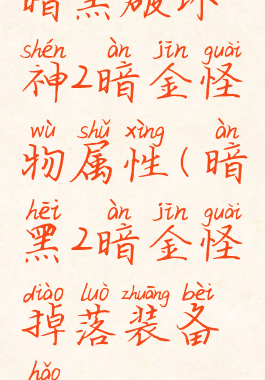 暗黑破坏
shén àn jīn guài
神2暗金怪
wù shǔ xìng àn
物属性(暗
hēi àn jīn guài
黑2暗金怪
diào luò zhuāng bèi
掉落装备
hǎo